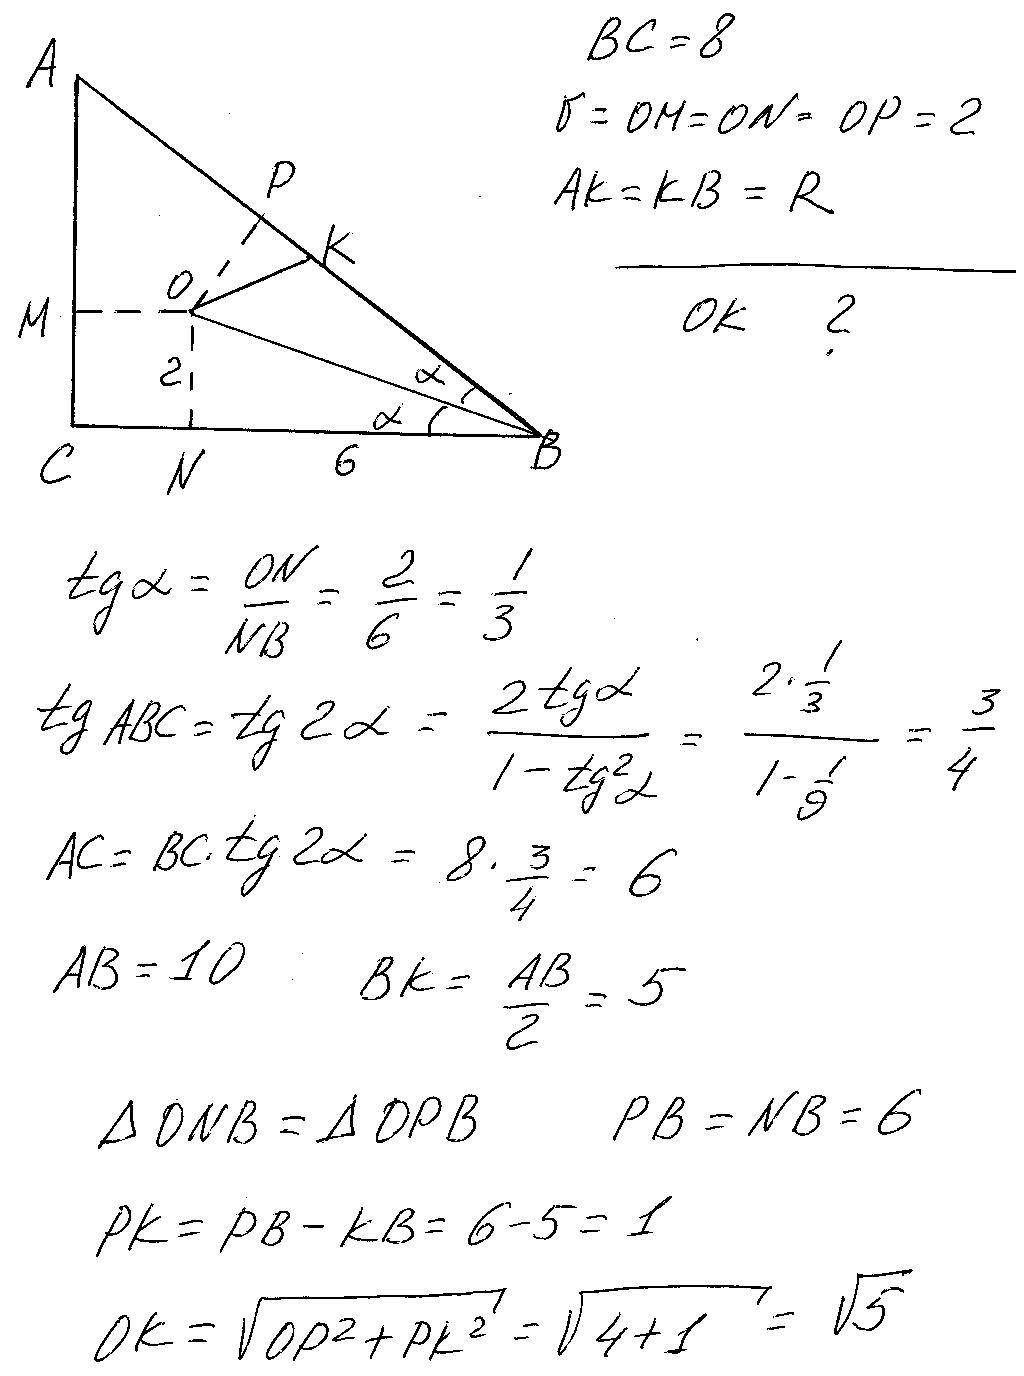 BC = 8
r = OM = ON = OP = 2
AK = KB = R
OK ?
A
P
K
O
M
2
α
α
C
N
6
B
tg α = ON/NB = 2/6 = 1/3
tg ABC = tg 2α = 2tgα/(1 - tg²α) = (2·1/3)/(1 - 1/9) = 3/4
AC = BC·tg 2α = 8·3/4 = 6
AB = 10 BK = AB/2 = 5
Δ ONB = Δ OPB PB = NB = 6
PK = PB - KB = 6 - 5 = 1
OK = √(OP² + PK²) = √(4+1) = √5